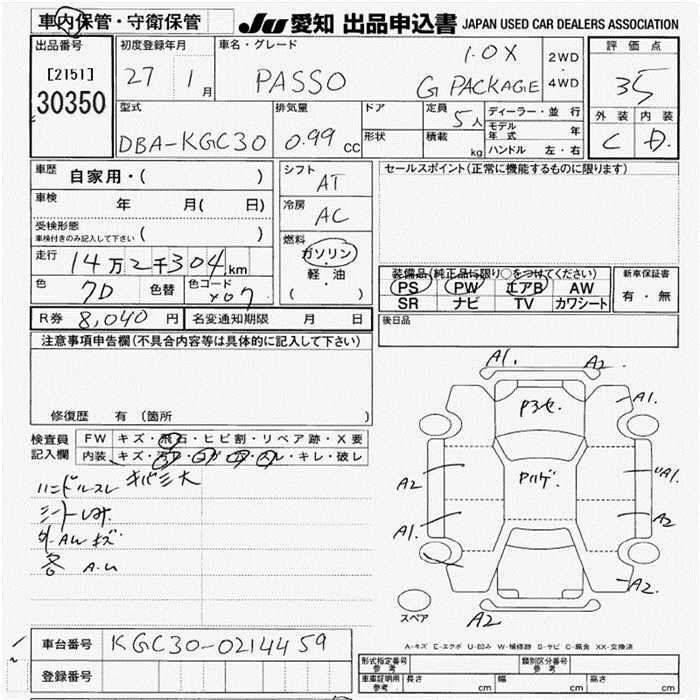 車内保管・守衛保管 JU 愛知 出品申込書 JAPAN USED CAR DEALERS ASSOCIATION
出品番号 初度登録年月 車名・グレード 評価点
[2151] 30350 27 1月 PASSO 1.0X G PACKAGE 2WD・4WD 3.5
型式 排気量 ドア 定員 5人 ディーラー・並行 外装 内装
DBA-KGC30 0.99 cc 形状 積載 kg モデル年式 年 C D
ハンドル 左・右
車歴 自家用・( ) シフト AT セールスポイント(正常に機能するものに限ります)
車検 年 月( 日) 冷房 AC
受検形態 車検付きのみ記入して下さい ( )
走行 14万2千304km 燃料 ガソリン 軽・油 ( )
色 7D 色替 色コード X07
装備品(純正品に限り○をつけてください) 新車保証書
PS PW エアB AW 有・無
SR ナビ TV カワシート
R券 8,040円 名変通知期限 月 日 後日品
注意事項申告欄(不具合内容等は具体的に記入して下さい)
修復歴 有 (箇所
検査員記入欄 FW キズ・飛石・ヒビ割・リペア跡・X要
内装 キズ・・キレ・破レ
ハンドルスレ
シート
キズ
各 A.U
A1. A2.
P3セ. A1.
A2 Pハゲ. A1.
A1. A2
A2.
スペア A2
A-キズ E-エクボ U-凹み W-補修跡 S-サビ C-腐食 XX-交換済
車台番号 KGC30-0214459
登録番号
形式指定番号 参考 類別区分番号 参考
車庫証明用 参考 長さ cm 幅 cm 高さ cm